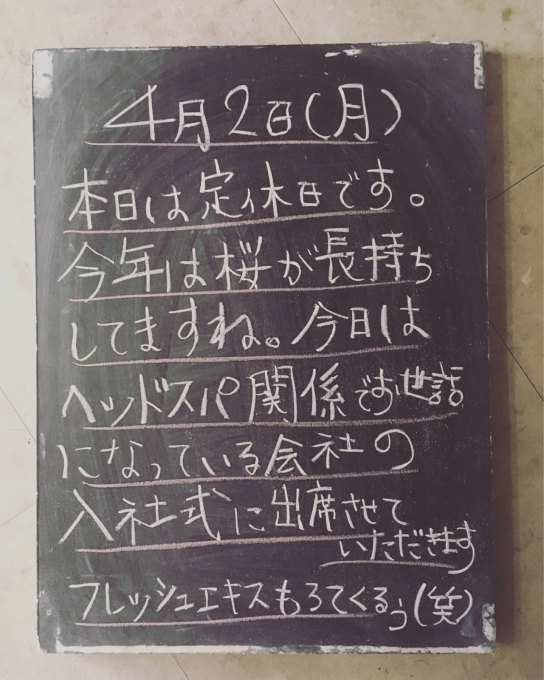 4月2日(月)
本日は定休日です。
今年は桜が長持ち
してますね。今日は
ヘッドスパ関係でお世話
になっている会社の
入社式に出席させて
いただきます
フレッシュエキスもろてくるぅ(笑)